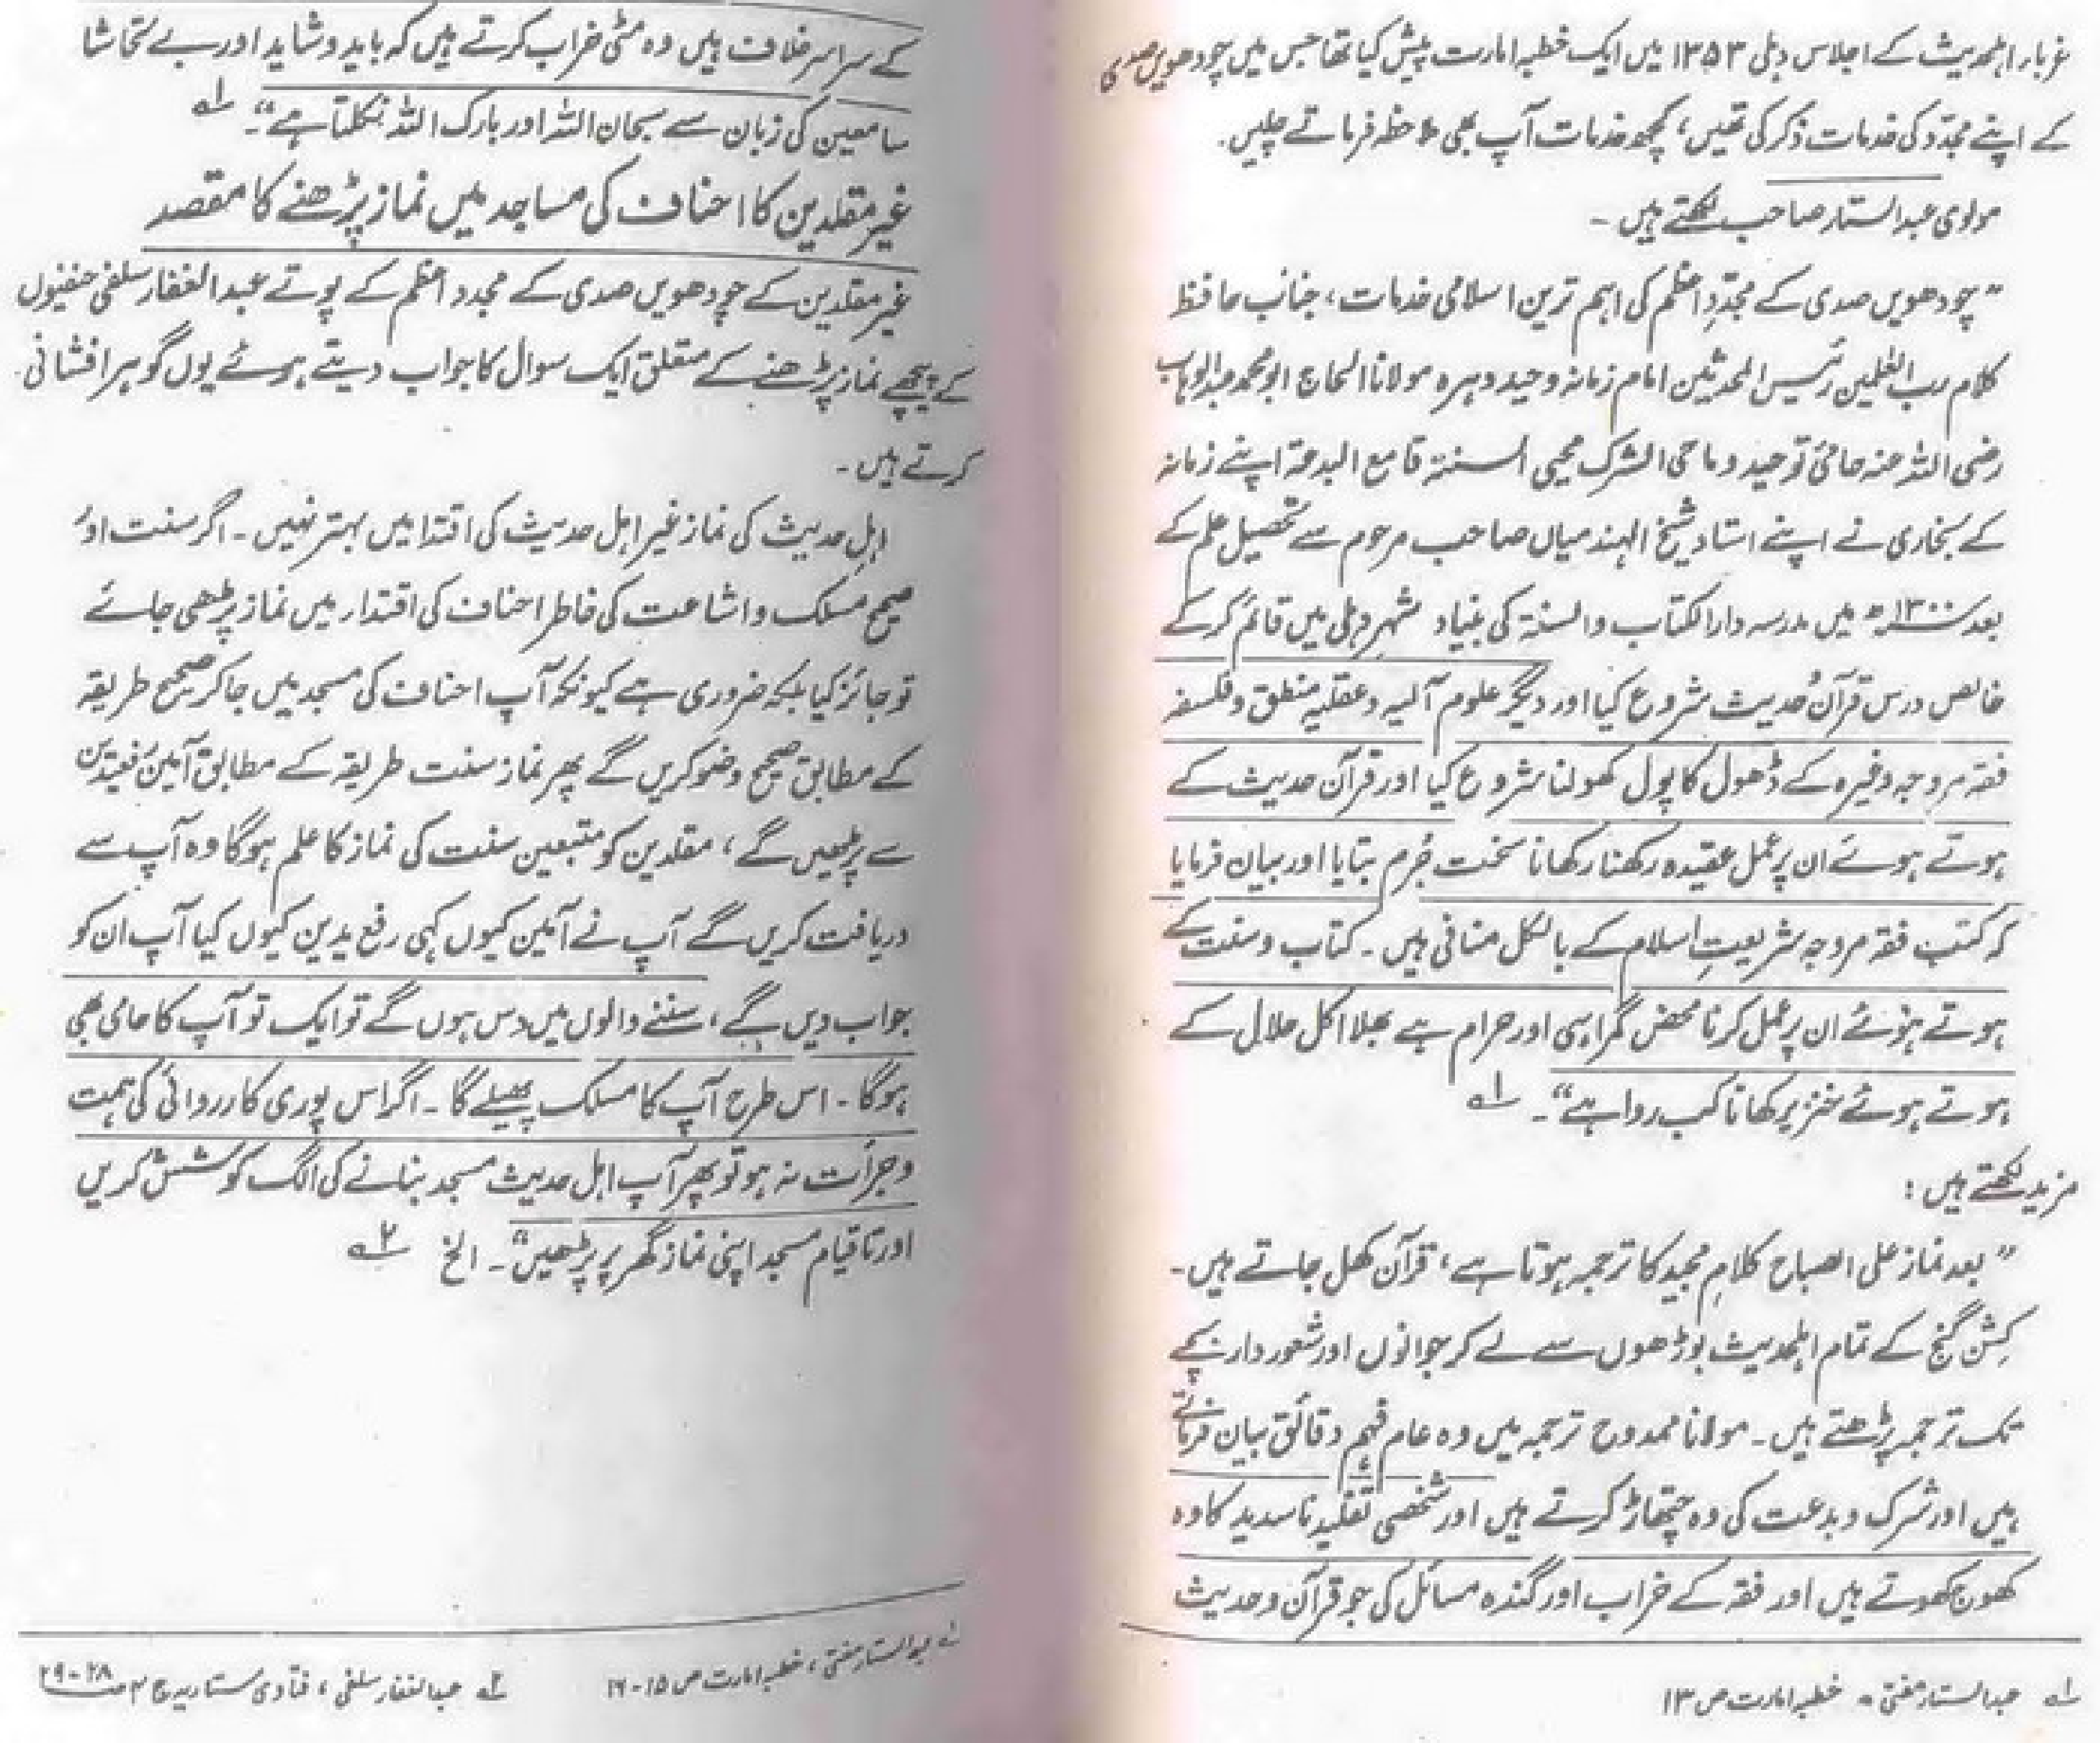 غرباء اہلحدیث کے اجلاس دہلی ۱۳۵۳ میں ایک خطبہ امارت پیش کیا تھا جس میں چودھویں صدی
کے اپنے مجدّد کی خدمات ذکر کی تھیں، کچھ خدمات آپ بھی ملاحظہ فرماتے چلیں۔
مولوی عبدالستار صاحب لکھتے ہیں ۔
"چودھویں صدی کے مجدّدِ اعظم کی اہم ترین اسلامی خدمات، جناب حافظ
کلام رب العٰلمین رئیس المحدثین امام زمانہ وحید دہرہ مولانا الحاج ابو محمد عبدالوہاب
رضی اللہ عنہ حامئ توحید و ماحی الشرک محیی السنۃ قامع البدعۃ اپنے زمانہ
کے بخاری نے اپنے استاد شیخ الہند میاں صاحب مرحوم سے تحصیل علم کے
بعد سنہ ۱۳۰۰ھ میں مدرسہ دارالکتاب والسنۃ کی بنیاد شہر دہلی میں قائم کر کے
خالص درس قرآن و حدیث شروع کیا اور دیگر علوم آلیہ و عقلیہ منطق و فلسفہ
فقہ مروجہ وغیرہ کے ڈھول کا پول کھولنا شروع کیا اور قرآن حدیث کے
ہوتے ہوئے ان پر عمل عقیدہ رکھنا رکھانا سخت جُرم بتایا اور بیان فرمایا
کہ کتب فقہ مروجہ شریعتِ اسلام کے بالکل منافی ہیں ۔ کتاب و سنت کے
ہوتے ہوئے ان پر عمل کرنا محض گمراہی اور حرام ہے بھلا اکل حلال کے
ہوتے ہوئے خنزیر کھانا کب روا ہے"۔ ۱ے
مزید لکھتے ہیں :
"بعد نماز علی الصباح کلامِ مجید کا ترجمہ ہوتا ہے، قرآن کھل جاتے ہیں ۔
کشن گنج کے تمام اہلحدیث بوڑھوں سے لے کر جوانوں اور شعور دار بچے
تک ترجمہ پڑھتے ہیں ۔ مولانا ممدوح ترجمہ میں وہ عام فہم دقائق بیان فرماتے
ہیں اور شرک و بدعت کی وہ چتھاڑ کرتے ہیں اور شخصی تقلید ناسدید کا وہ
کھون کھوتے ہیں اور فقہ کے خراب اور گندہ مسائل کی جو قرآن و حدیث
۱ے عبدالستار مفتی ۔ خطبہ امارت ص ۱۳
کے سراسر خلاف ہیں وہ مٹی خراب کرتے ہیں کہ باید و شاید اور بے تحاشا
سامعین کی زبان سے سبحان اللہ اور بارک اللہ نکلتا ہے"۔ ۱ے
غیر مقلدین کا احناف کی مساجد میں نماز پڑھنے کا مقصد
غیر مقلدین کے چودھویں صدی کے مجدد اعظم کے پوتے عبدالغفار سلفی حنفیوں
کے پیچھے نماز پڑھنے کے متعلق ایک سوال کا جواب دیتے ہوئے یوں گوہر افشانی
کرتے ہیں ۔
اہلِ حدیث کی نماز غیر اہل حدیث کی اقتدا میں بہتر نہیں ۔ اگر سنت اور
صحیح مسلک و اشاعت کی خاطر احناف کی اقتدار میں نماز پڑھی جائے
تو جائز کیا بلکہ ضروری ہے کیونکہ آپ احناف کی مسجد میں جا کر صحیح طریقہ
کے مطابق صحیح وضو کریں گے پھر نماز سنت طریقہ کے مطابق آمین رفعیدین
سے پڑھیں گے، مقلدین کو متبعین سنت کی نماز کا علم ہوگا وہ آپ سے
دریافت کریں گے آپ نے آمین کیوں کہی رفع یدین کیوں کیا آپ ان کو
جواب دیں گے، سننے والوں میں دس ہوں گے تو ایک تو آپ کا حامی بھی
ہوگا ۔ اس طرح آپ کا مسلک پھیلے گا ۔ اگر اس پوری کارروائی کی ہمت
و جرأت نہ ہو تو پھر آپ اہل حدیث مسجد بنانے کی الگ کوشش کریں
اور تا قیام مسجد اپنی نماز گھر پر پڑھیں"۔ الخ ۲ے
۱ے عبدالستار مفتی، خطبہ امارت ص ۱۵-۱۶
۲ے عبدالغفار سلفی، فتاوی ستاریہ ج ۳ ص ۲۸-۲۹